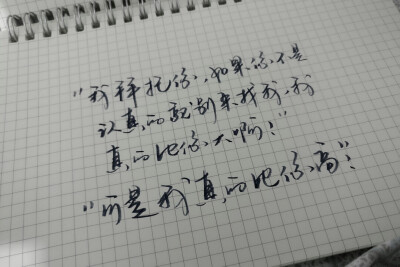 "我拜托你，如果你不是
认真的就别来找我，我
真的比你大啊！"
"可是我真的比你高！"